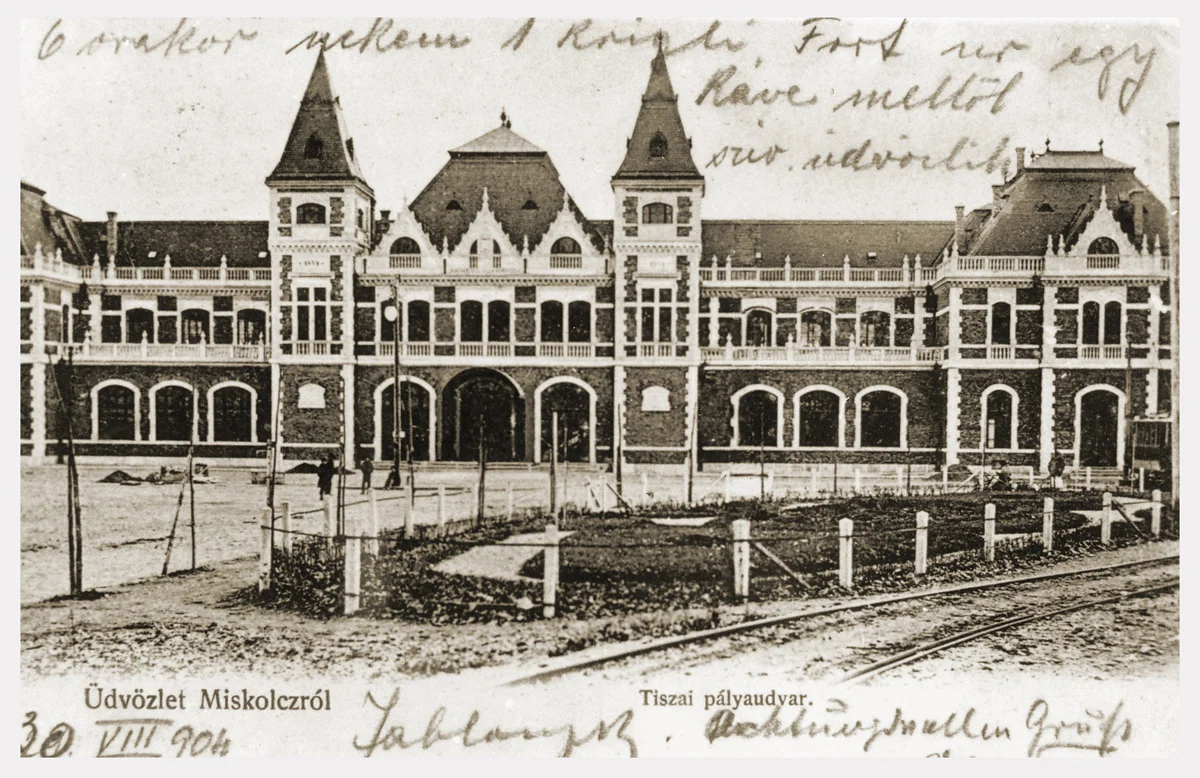 6 orakor nekem 1 krigli, Fort ur egy
Kávé mellöl
sziv. üdvözlik
Üdvözlet Miskolczról
Tiszai pályaudvar.
30. VIII 904
Achtungsvollen Gruß